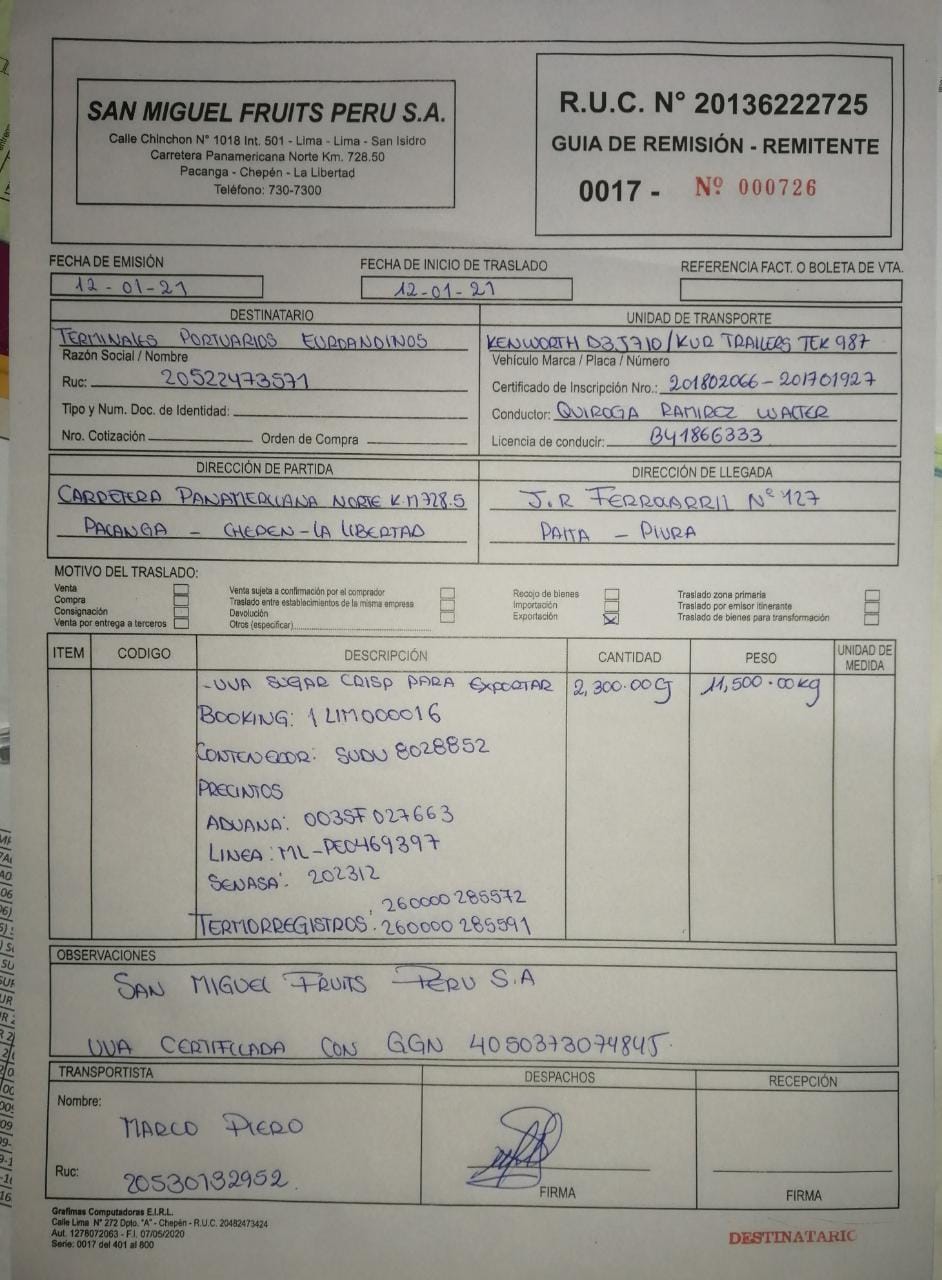 SAN MIGUEL FRUITS PERU S.A.
Calle Chinchon N° 1018 Int. 501 - Lima - Lima - San Isidro
Carretera Panamericana Norte Km. 728.50
Pacanga - Chepén - La Libertad
Teléfono: 730-7300
R.U.C. N° 20136222725
GUIA DE REMISIÓN - REMITENTE
0017 - Nº 000726
FECHA DE EMISIÓN
12-01-21
FECHA DE INICIO DE TRASLADO
12-01-21
REFERENCIA FACT. O BOLETA DE VTA.
DESTINATARIO
TERMINALES PORTUARIOS EUROANDINOS
Razón Social / Nombre
Ruc: 20522473571
Tipo y Num. Doc. de Identidad:
Nro. Cotización Orden de Compra
UNIDAD DE TRANSPORTE
KENWORTH D3J710/KUR TRAILERS TEK 987
Vehículo Marca / Placa / Número
Certificado de Inscripción Nro.: 201802066-201701927
Conductor: QUIROGA RAMIREZ WALTER
Licencia de conducir: B41866333
DIRECCIÓN DE PARTIDA
CARRETERA PANAMERICANA NORTE K.M 728.5
PACANGA - CHEPEN-LA LIBERTAD
DIRECCIÓN DE LLEGADA
J.R FERROCARRIL N° 127
PAITA - PIURA
MOTIVO DEL TRASLADO:
Venta
Compra
Consignación
Venta por entrega a terceros
Venta sujeta a confirmación por el comprador
Traslado entre establecimientos de la misma empresa
Devolución
Otros (especificar)
Recojo de bienes
Importación
Exportación
Traslado zona primaria
Traslado por emisor itinerante
Traslado de bienes para transformación
ITEM CODIGO DESCRIPCIÓN CANTIDAD PESO UNIDAD DE MEDIDA
-UVA SUGAR CRISP PARA EXPORTAR 2,300.00CJ 11,500.00kg
BOOKING: 1LIM000016
CONTENEDOR: SUDU 8028852
PRECINTOS
ADUANA: 003SF027663
LINEA: ML-PE0469397
SENASA: 202312
260000 285572
TERMORREGISTROS: 260000 285591
OBSERVACIONES
SAN MIGUEL FRUITS PERU S.A
UVA CERTIFICADA CON GGN 4050373074845.
TRANSPORTISTA
Nombre:
MARCO PIERO
Ruc: 20530732952
DESPACHOS
FIRMA
RECEPCIÓN
FIRMA
Grafimas Computadoras E.I.R.L.
Calle Lima N° 272 Dpto. "A" - Chepén - R.U.C. 20482473424
Aut. 1278072063 - F.I. 07/05/2020
Serie: 0017 del 401 al 800
DESTINATARIO